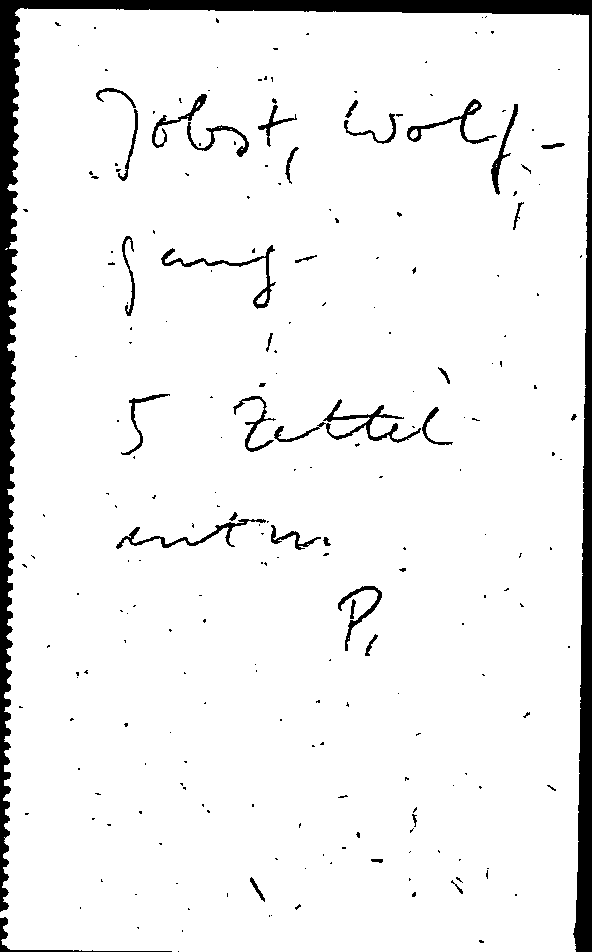 Jobst, Wolf-
gang
5 Zettel
entn.
P.